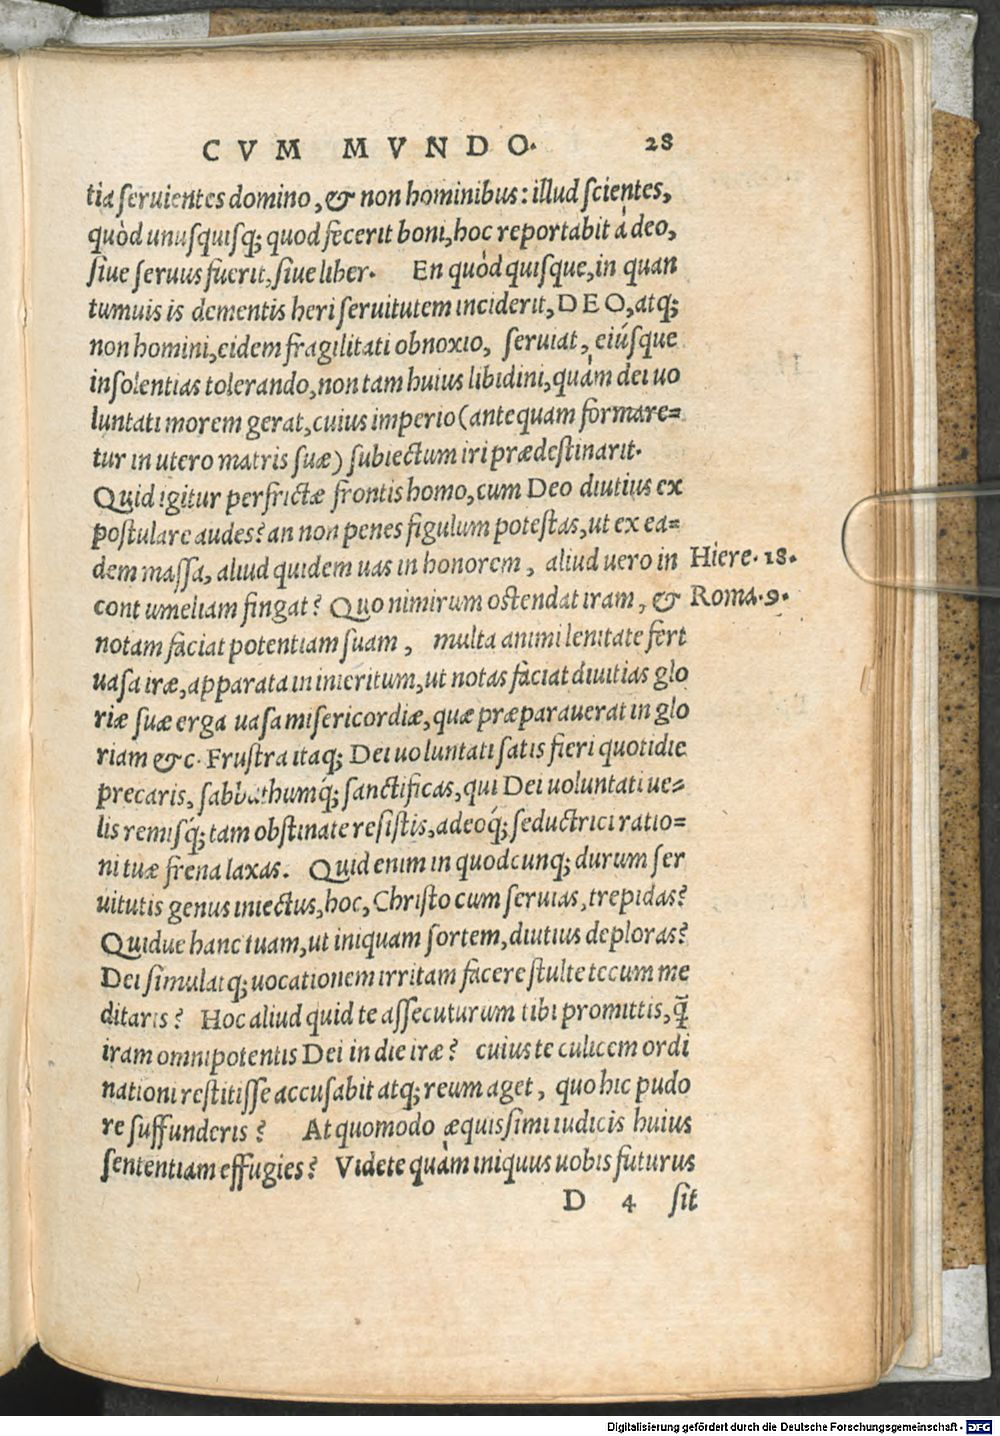 CVM MVNDO. 28
tia seruientes domino, & non hominibus: illud scientes,
quòd unusquisq; quod fecerit boni, hoc reportabit à deo,
siue seruus fuerit, siue liber. En quòd quisque, in quan
tumuis is dementis heri seruitutem inciderit, DEO, atq;
non homini, eidem fragilitati obnoxio, seruiat, eiúsque
insolentias tolerando, non tam huius libidini, quàm dei uo
luntati morem gerat, cuius imperio (antequam formare=
tur in utero matris suæ) subiectum iri prædestinarit.
Quid igitur perfrictæ frontis homo, cum Deo diutius ex
postulare audes? an non penes figulum potestas, ut ex ea=
dem massa, aliud quidem uas in honorem, aliud uero in Hiere. 18.
contumeliam fingat? Quo nimirum ostendat iram, & Roma. 9.
notam faciat potentiam suam, multa animi lenitate fert
uasa iræ, apparata in interitum, ut notas faciat diuitias glo
riæ suæ erga uasa misericordiæ, quæ præparauerat in glo
riam &c. Frustra itaq; Dei uoluntati satis fieri quotidie
precaris, sabbathumq́; sanctificas, qui Dei uoluntati ue=
lis remisq́; tam obstinate resistis, adeoq́; seductrici ratio=
ni tuæ frena laxas. Quid enim in quodcunq; durum ser
uitutis genus iniectus, hoc, Christo cum seruias, trepidas?
Quidue hanc tuam, ut iniquam sortem, diutius deploras?
Dei simulatq; uocationem irritam facere stulte tecum me
ditaris? Hoc aliud quid te assecuturum tibi promittis, q̃
iram omnipotentis Dei in die iræ? cuius te culicem ordi
nationi restitisse accusabit atq; reum aget, quo hic pudo
re suffunderis? At quomodo æquissimi iudicis huius
sententiam effugies? Videte quàm iniquus uobis futurus
D 4 sit
Digitalisierung gefördert durch die Deutsche Forschungsgemeinschaft - DFG